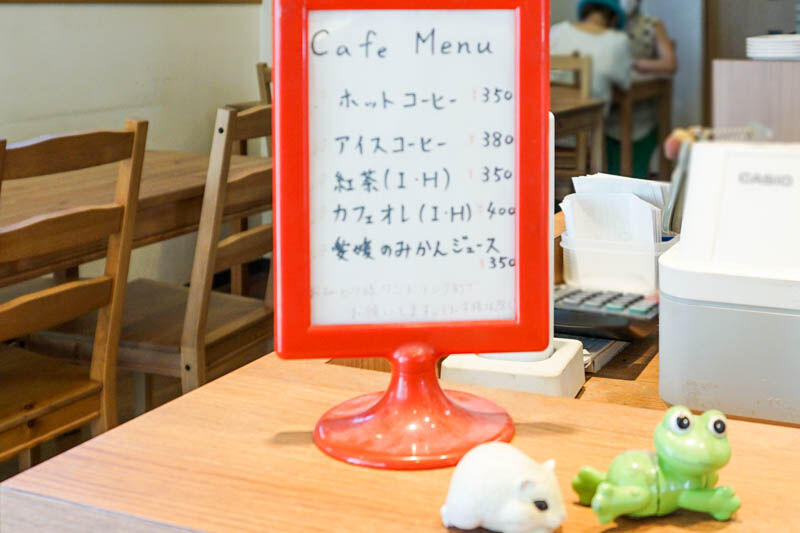 Cafe Menu
ホットコーヒー ¥350
アイスコーヒー ¥380
紅茶(I・H) ¥350
カフェオレ(I・H) ¥400
愛媛のみかんジュース
¥350
お願いします
CASIO